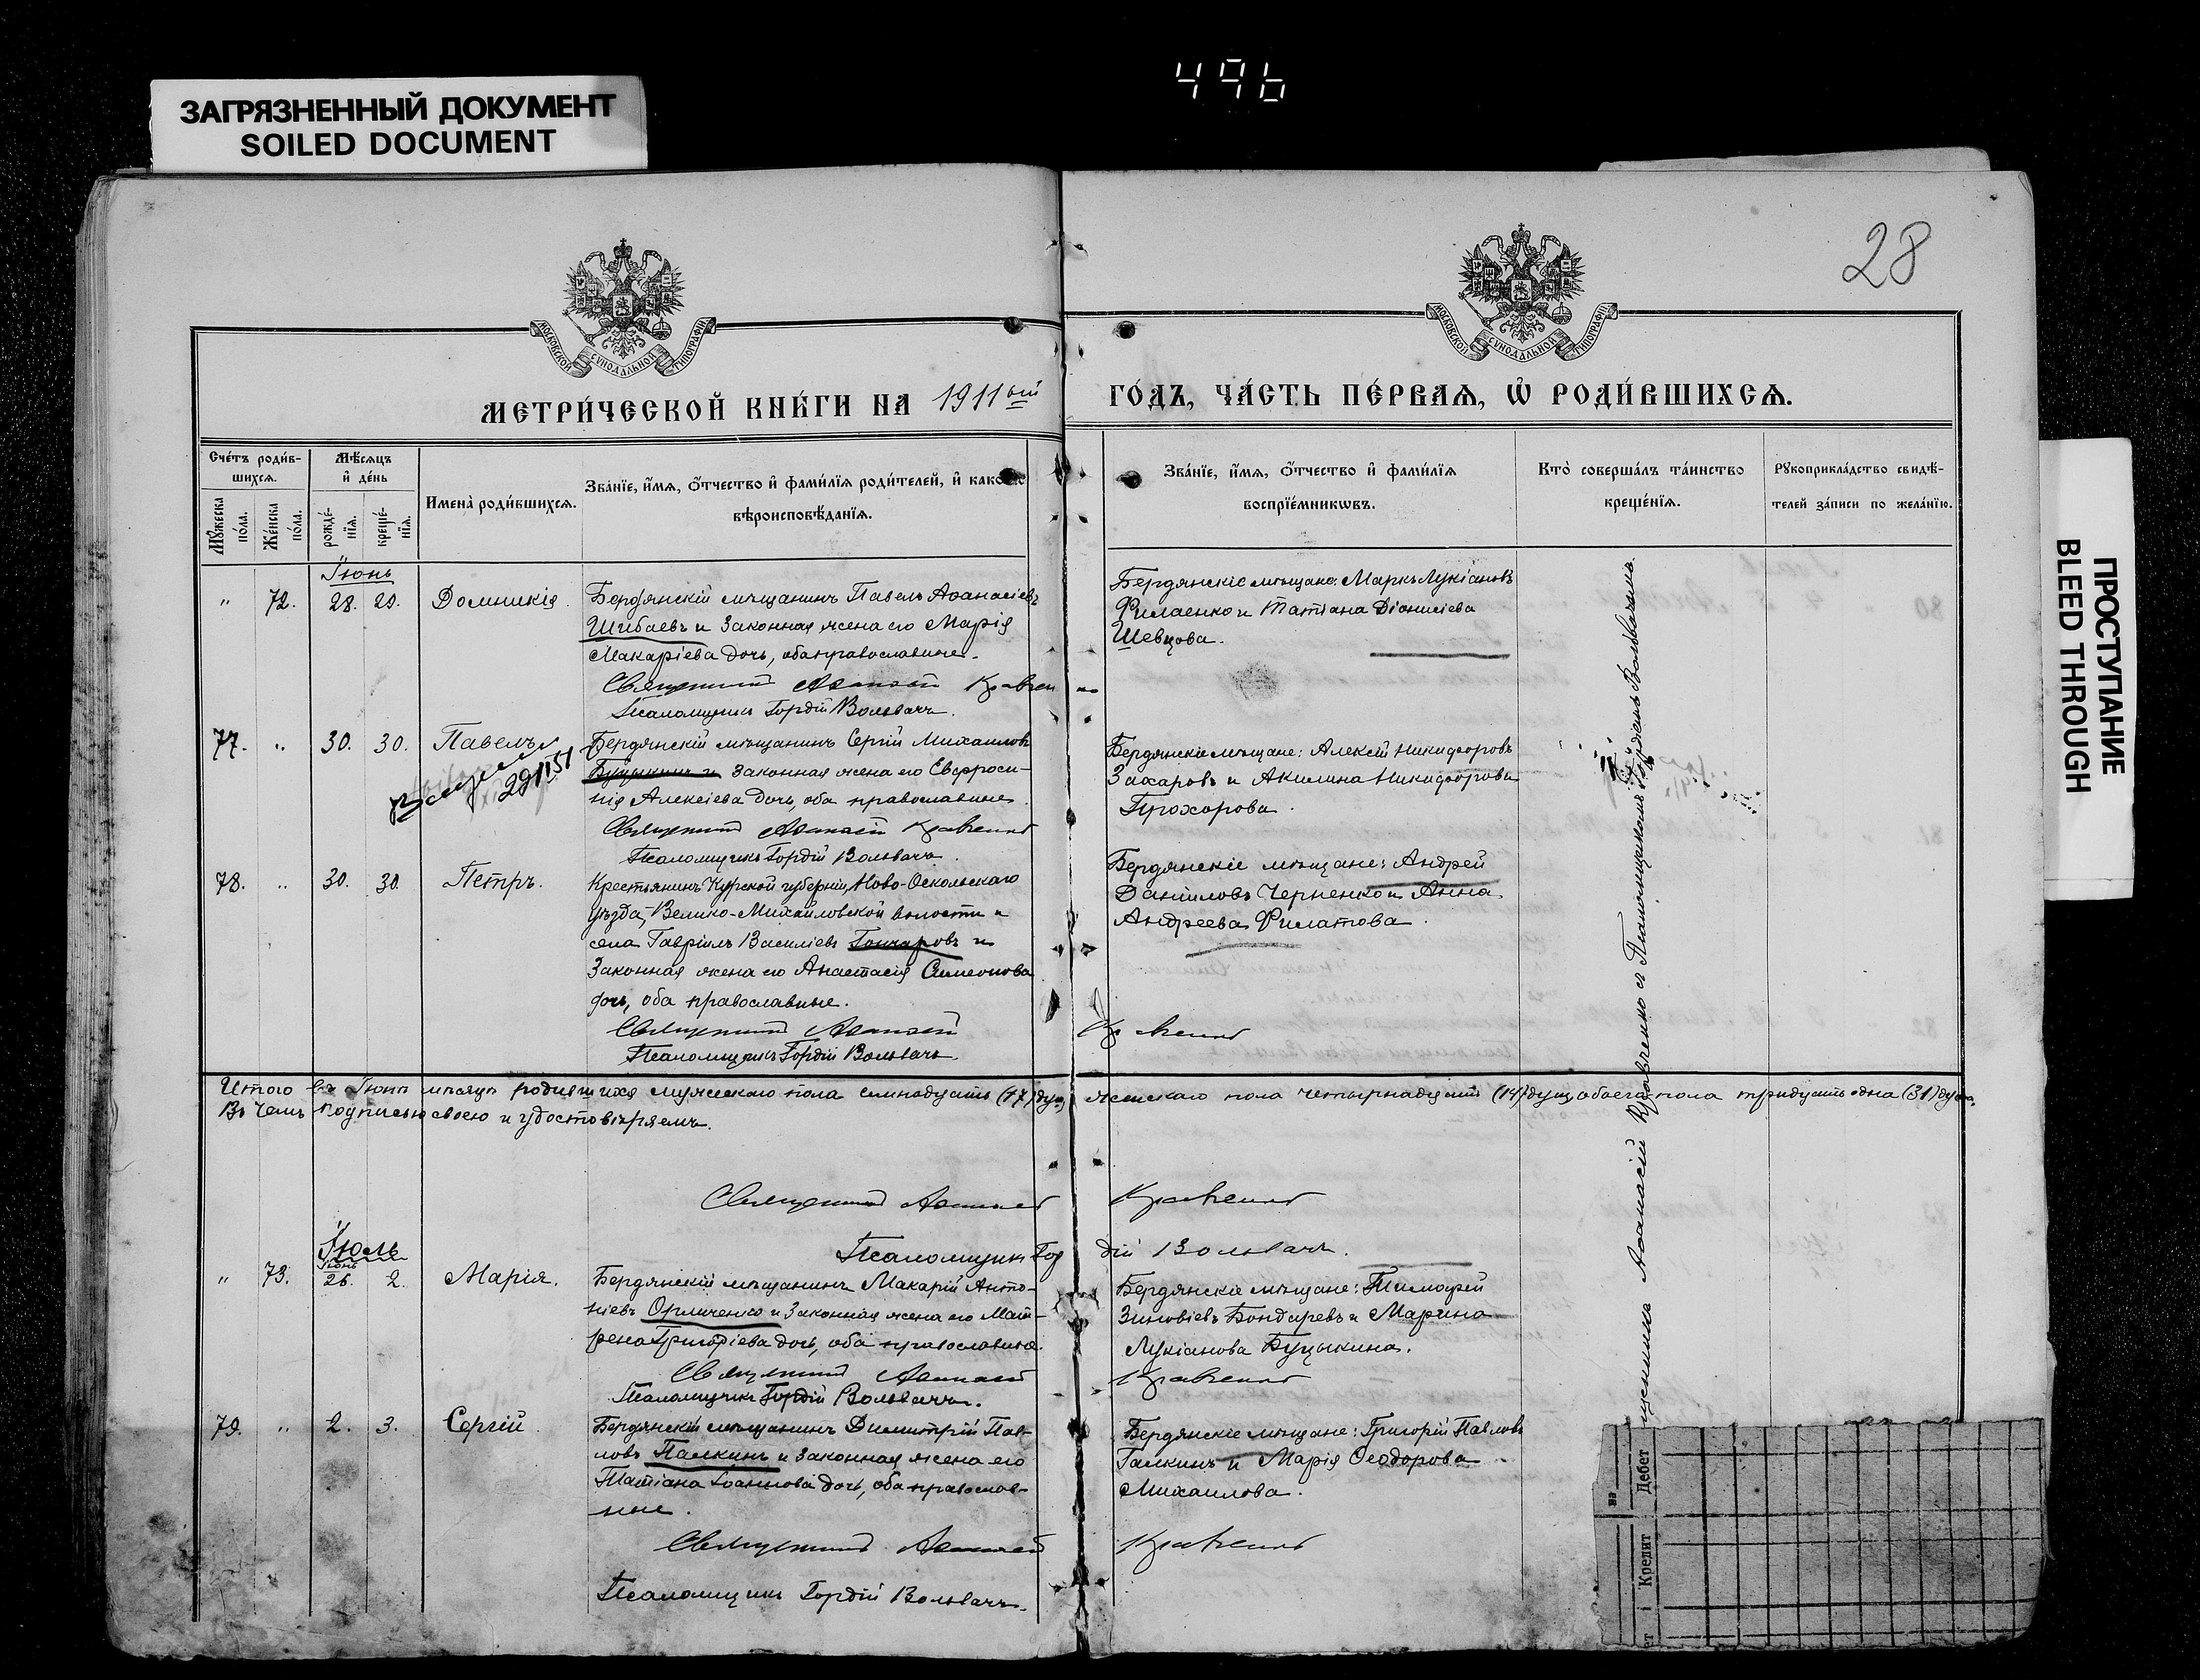 496
ЗАГРЯЗНЕННЫЙ ДОКУМЕНТ
SOILED DOCUMENT
ПРОСТУПАНИЕ
BLEED THROUGH
28
МОСКОВСКОЙ СѴНОДАЛЬНОЙ ТИПОГРАФІИ
МОСКОВСКОЙ СѴНОДАЛЬНОЙ ТИПОГРАФІИ
МЕТРИ́ЧЕСКОЙ КНИ́ГИ НА 1911ый
ГО́ДЪ, ЧА́СТЬ ПЕ́РВАѦ, Ѽ РОДИ́ВШИХСѦ.
Сче́тъ роди́вшихсѧ.
Мꙋ́жеска по́ла.
Же́нска по́ла.
Мѣ́сѧцъ и҆ де́нь
рожде́нїѧ.
креще́нїѧ.
Имена̀ роди́вшихсѧ.
Зва́нїе, и҆́мѧ, ѻ҆́тчество и҆ фами́лїѧ роди́телей, и҆ како́гѡ
вѣроисповѣ́данїѧ.
Зва́нїе, и҆́мѧ, ѻ҆́тчество и҆ фами́лїѧ
воспрїе́мникѡвъ.
Кто̀ соверша́лъ та́инство
креще́нїѧ.
Рꙋкоприкла́дство свидѣ́-
телей за́писи по жела́нїю.
Іюнь
" 72. 28. 29. Домникія.
Бердянскій мѣщанинъ Павелъ Аѳанасіевъ
Шибаевъ и законная жена его Марія
Макаріева дочь, оба православные.
Священникъ Аѳанасій Кравченко
Псаломщикъ Гордій Вольвачъ.
Бердянскіе мѣщане: Маркъ Лукіановъ
Филаенко и Татіана Діонисіева
Шевцова.
77. " 30. 30. Павелъ
29 1151
Бердянскій мѣщанинъ Сергій Михаиловъ
Буцыкинъ и законная жена его Евфроси-
нія Алексіева дочь, оба православные.
Священникъ Аѳанасій Кравченко
Псаломщикъ Гордій Вольвачъ.
Бердянскіе мѣщане: Алексій Никифоровъ
Захаровъ и Акилина Никифорова
Прохорова.
78. " 30. 30. Петръ.
Крестьянинъ Курской губерніи, Ново-Оскольскаго
уѣзда, Велико-Михайловской волости и
села Гавріилъ Василіевъ Гончаровъ и
законная жена его Анастасія Симеонова
дочь, оба православные.
Священникъ Аѳанасій Кравченко
Псаломщикъ Гордій Вольвачъ.
Бердянскіе мѣщане: Андрей
Даніиловъ Черненко и Анна
Андреева Филатова.
Итого въ Іюнѣ мѣсяцѣ родившихся мужескаго пола семнадцать (17) душъ, женскаго пола четырнадцать (14) душъ, обоего пола тридцать одна (31) душа.
Въ чемъ подписью своею и удостовѣряемъ.
Священникъ Аѳанасій Кравченко
Псаломщикъ Гордій Вольвачъ.
Іюль
Іюнь
" 73. 26. 2. Марія.
Бердянскій мѣщанинъ Макарій Анто-
ніевъ Орличенко и законная жена его Мат-
рена Григоріева дочь, оба православные.
Священникъ Аѳанасій Кравченко
Псаломщикъ Гордій Вольвачъ.
Бердянскіе мѣщане: Тимофей
Зиновіевъ Бондаревъ и Марина
Лукіанова Буцыкина.
79. " 2. 3. Сергій.
Бердянскій мѣщанинъ Димитрій Пав-
ловъ Палкинъ и законная жена его
Татіана Іоаннова дочь, оба православ-
ные.
Священникъ Аѳанасій Кравченко
Псаломщикъ Гордій Вольвачъ.
Бердянскіе мѣщане: Григорій Павловъ
Галкинъ и Марія Ѳеодорова
Михаилова.
Аѳанасій Кравченко съ Псаломщикомъ Гордіемъ Вольвачемъ.
на
Дебет
Кредит